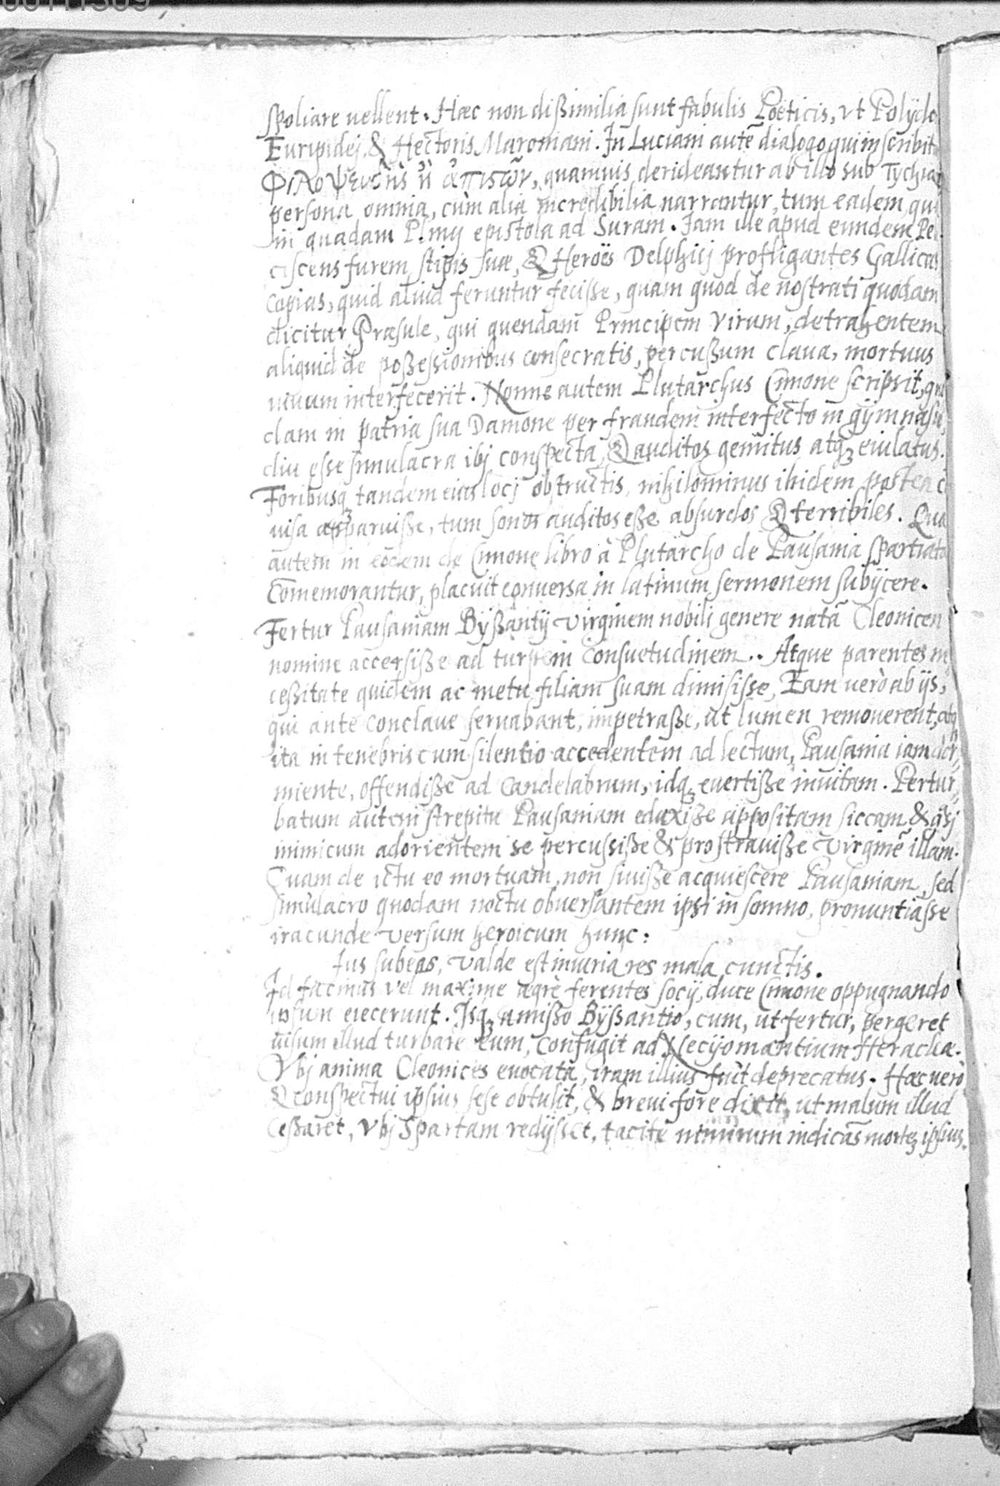 spoliare vellent. Hæc non dißimilia sunt fabulis Poëticis, ut Polydo
Euripidej, & Hectoris Maroniani. In Luciani autē dialogo qui inscribit
Φιλοψευδὴς ἢ ἀπιστῶν, quamuis derideantur ab illo sub Tychia
persona omnia, cùm alia incredibilia narrantur, tum eadem qu
in quadam Plinij epistola ad Suram. Iam ille apud eundem Pe
ciscens furem stipis suæ, & Heroës Delphicj profligantes Gallicas
copias, quid aliud feruntur fecisse, quam quod de nostrati quodam
dicitur Præsule, qui quendam Principem virum, detrahentem
aliquid de poßeßionibus consecratis, percußum claua, mortuus
uiuum interfecerit. Nonne autem Plutarchus Cimone scripsit, qu
clam in patria sua Damone per fraudem interfecto in gymnasio,
diu esse simulacra ibj conspecta, & auditos gemitus atq; eiulatus.
Foribusq; tandem eius locj obstructis, nihilominus ibidem postea
visa apparuisse, tum sonos auditos esse absurdos & terribiles. Quæ
autem in eodem de Cimone libro à Plutarcho de Pausania Spartiata
Comemorantur, placuit conuersa in latinum sermonem subijcere.
Fertur Pausaniam Byßantij virginem nobili genere natā Cleonicen
nomine accersiße ad turpem consuetudinem. Atque parentes n
ceßitate quidem ac metu filiam suam dimisisse, Eam verò ab ijs,
qui ante conclaue seruabant, impetraße, ut lumen remouerent, atq;
ita in tenebris cum silentio accedentem ad lectum, Pausania iam dor,
miente, offendiße ad candelabrum, idq; euertiße inuitam. Pertur,
batum autem strepitu Pausaniam eduxiße appositam siccam & q̄sj
inimicum adorientem se percussiße & prostrauiße virginē illam.
Quam de ictu eo mortuam, non siuiße acquiescere Pausaniam, sed
simulacro quodam noctu obuersantem ipsi in somno, pronuntiasse
iracunde versum heroicum hunc:
Ius subeas, valde est iniuria res mala cunctis.
Id facinus vel maxime ægrè ferentes socij, duce Cimone oppugnando
ipsum eiecerunt. Isq; amißo Byßantio, cum, ut fertur, pergeret
uisum illud turbare eum, confugit ad Necyomantium Heracliæ.
Vbj anima Cleonices euocata, iram illius fuit deprecatus. Hæc uerò
& conspectui ipsius sese obtulit, & breui fore dixit, ut malum illud
Ceßaret, vbj Spartam redijsset, tacitè nimirum indicās mortē ipsius.